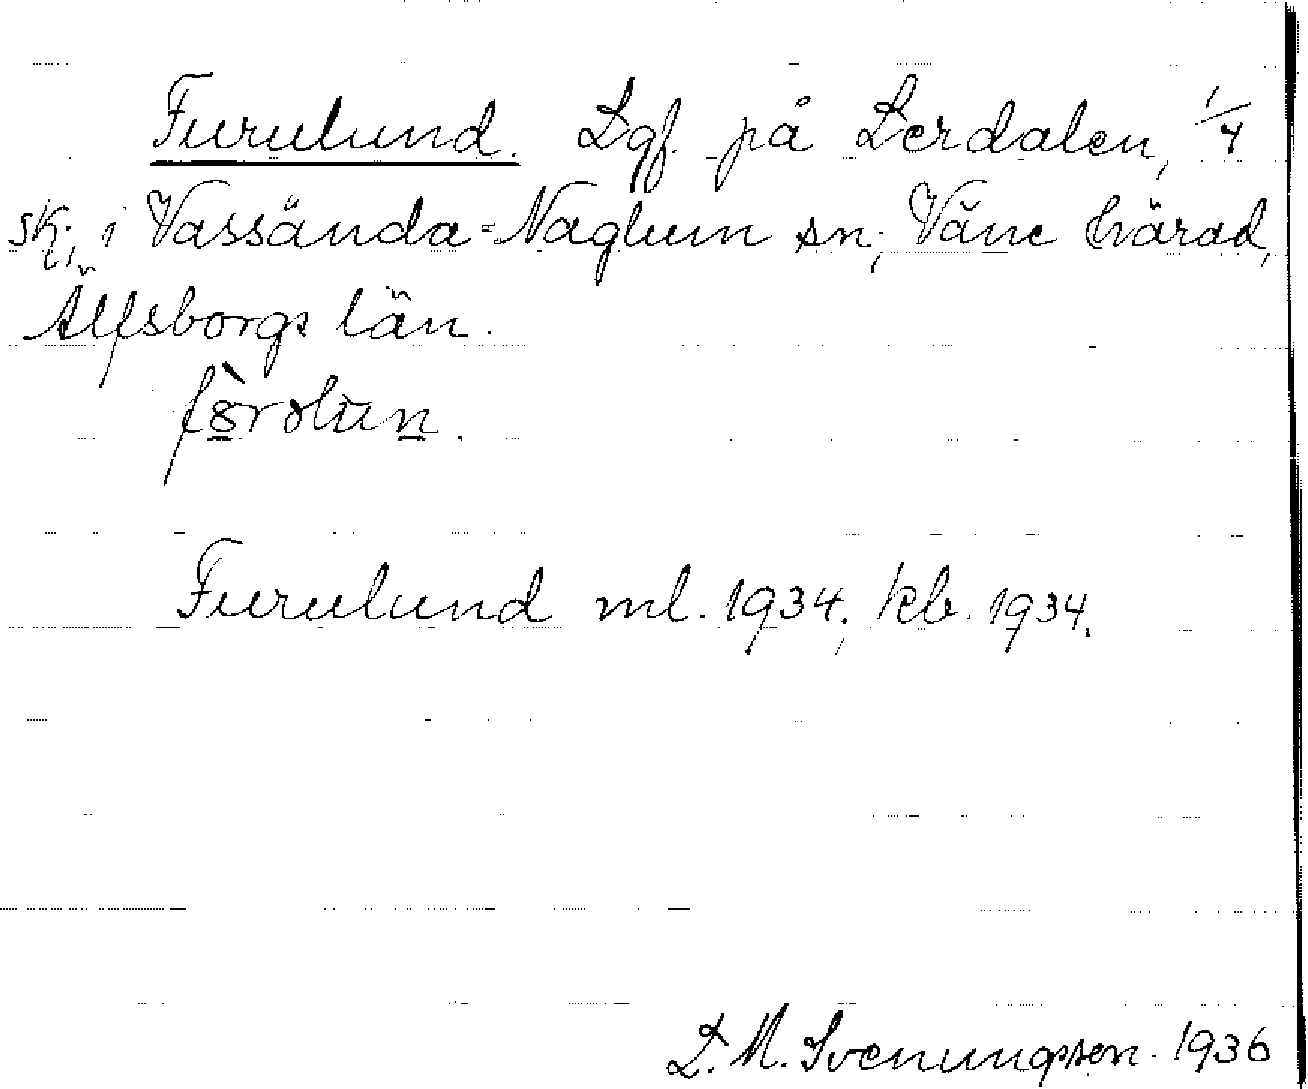 Furulund. Lgf. på Lerdalen, 1/4
sk., i Vassända-Naglum sn; Väne härad,
Älfsborgs län.
Furulund ml. 1934; kb. 1934.
L. M. Svenungsson. 1936